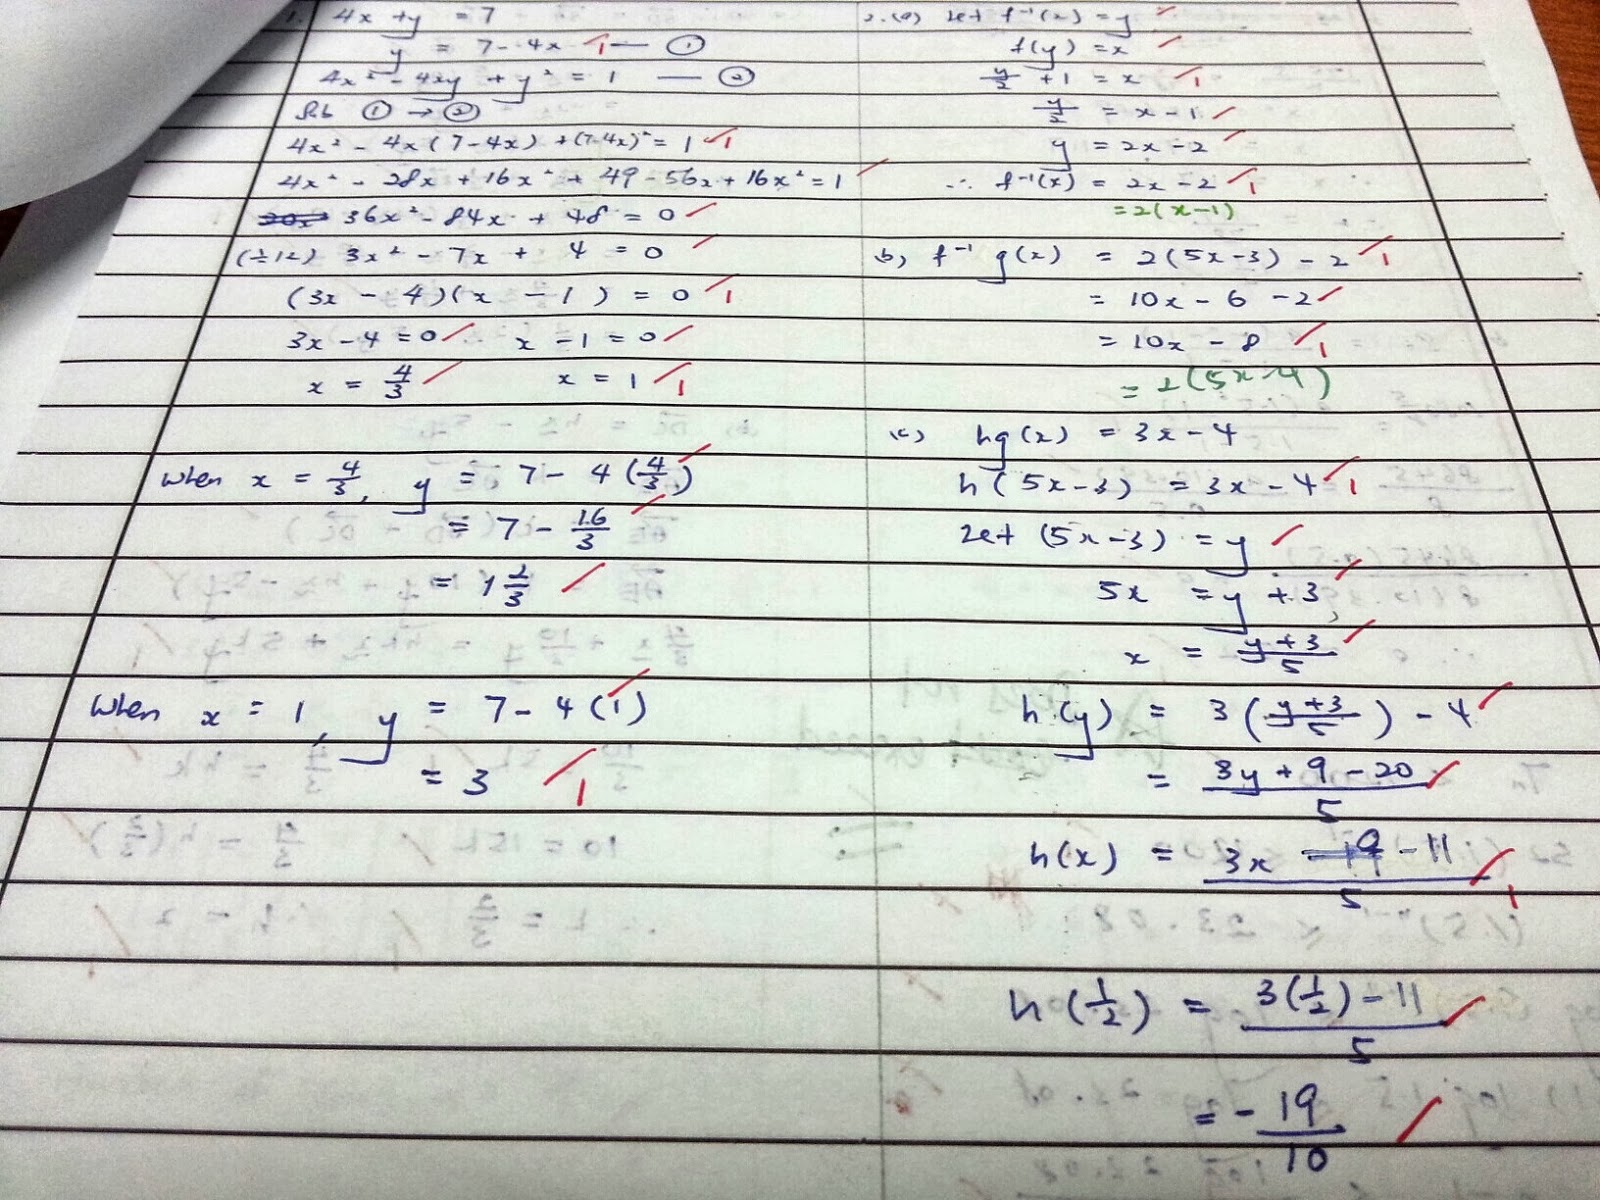 1. 4x + y = 7
y = 7 - 4x 1 — ①
4x² - 4xy + y² = 1 — ②
Sub ① → ②
4x² - 4x(7-4x) + (7-4x)² = 1 1
4x² - 28x + 16x² + 49 - 56x + 16x² = 1
36x² - 84x + 48 = 0
(÷12) 3x² - 7x + 4 = 0
(3x - 4)(x - 1) = 0 1
3x - 4 = 0 x - 1 = 0
x = 4/3 x = 1 1
When x = 4/3, y = 7 - 4(4/3)
= 7 - 16/3
= 1 2/3
When x = 1, y = 7 - 4(1)
= 3 1
2. (a) Let f⁻¹(x) = y
f(y) = x
y/2 + 1 = x 1
y/2 = x - 1
y = 2x - 2
∴ f⁻¹(x) = 2x - 2 1
= 2(x-1)
b) f⁻¹ g(x) = 2(5x-3) - 2 1
= 10x - 6 - 2
= 10x - 8 1
= 2(5x-4)
(c) hg(x) = 3x - 4
h(5x-3) = 3x - 4 1
Let (5x-3) = y
5x = y + 3
x = (y+3)/5
h(y) = 3((y+3)/5) - 4
= (3y + 9 - 20)/5
h(x) = (3x - 11)/5 1
h(1/2) = (3(1/2) - 11)/5
= - 19/10